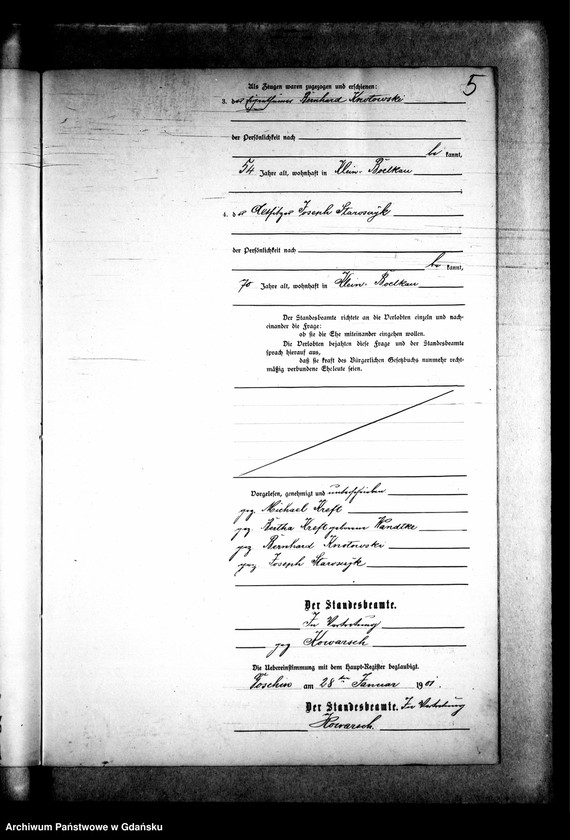 5
Als Zeugen waren zugezogen und erschienen:
3. der Eigenthümer Bernhard Knotowski
der Persönlichkeit nach
be kannt,
54 Jahre alt, wohnhaft in Klein-Boelkau
4. der Altsitzer Joseph Staroszyk
der Persönlichkeit nach
be kannt,
70 Jahre alt, wohnhaft in Klein-Boelkau
Der Standesbeamte richtete an die Verlobten einzeln und nach-
einander die Frage:
ob sie die Ehe miteinander eingehen wollen.
Die Verlobten bejahten diese Frage und der Standesbeamte
sprach hierauf aus,
daß sie kraft des Bürgerlichen Gesetzbuchs nunmehr recht-
mäßig verbundene Eheleute seien.
Vorgelesen, genehmigt und unterschrieben
gez. Michael Kreft
gez. Bertha Kreft geborene Wandtke
gez. Bernhard Knotowski
gez. Joseph Staroszyk
Der Standesbeamte.
In Vertretung
gez Kowarsch
Die Uebereinstimmung mit dem Haupt-Register beglaubigt.
am 28ten Januar 1901.
Der Standesbeamte. In Vertretung
Kowarsch.
Archiwum Państwowe w Gdańsku